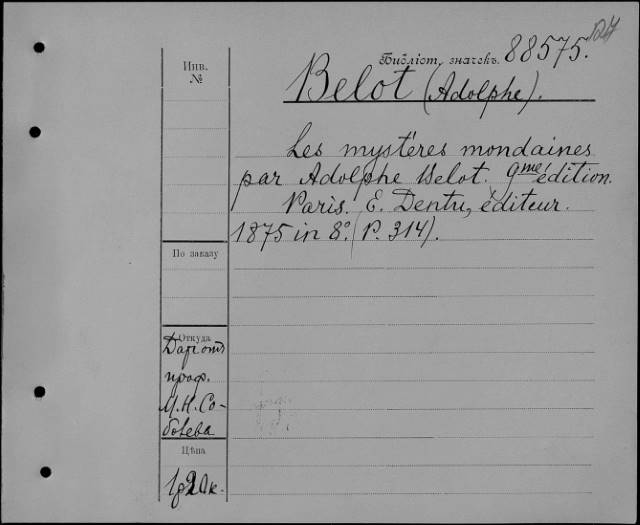 Библіот. значекъ. 88575.
Инв.
№
Belot (Adolphe).
Les mystéres mondaines
par Adolphe Belot. 9me édition.
Paris. E. Dentu, éditeur.
1875 in 8º. (P. 314).
По заказу
Откуда
Дар отъ
проф.
М.Н. Со-
болева
Цѣна
1р20к.